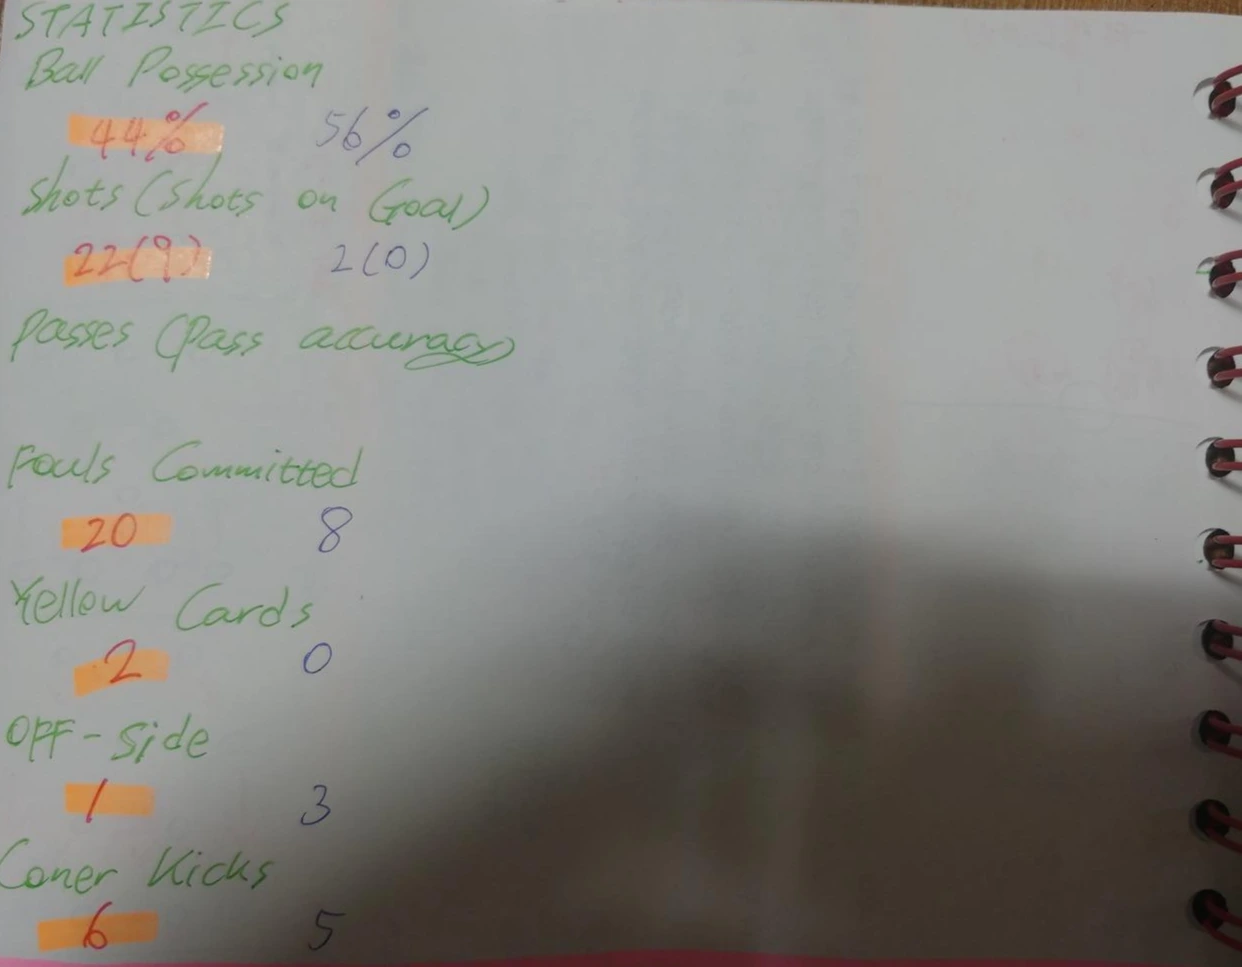 STATISTICS
Ball Possession
44% 56%
Shots (Shots on Goal)
22(9) 2(0)
Passes (Pass accuracy)
Fouls Committed
20 8
Yellow Cards
2 0
OFF-Side
1 3
Coner Kicks
6 5